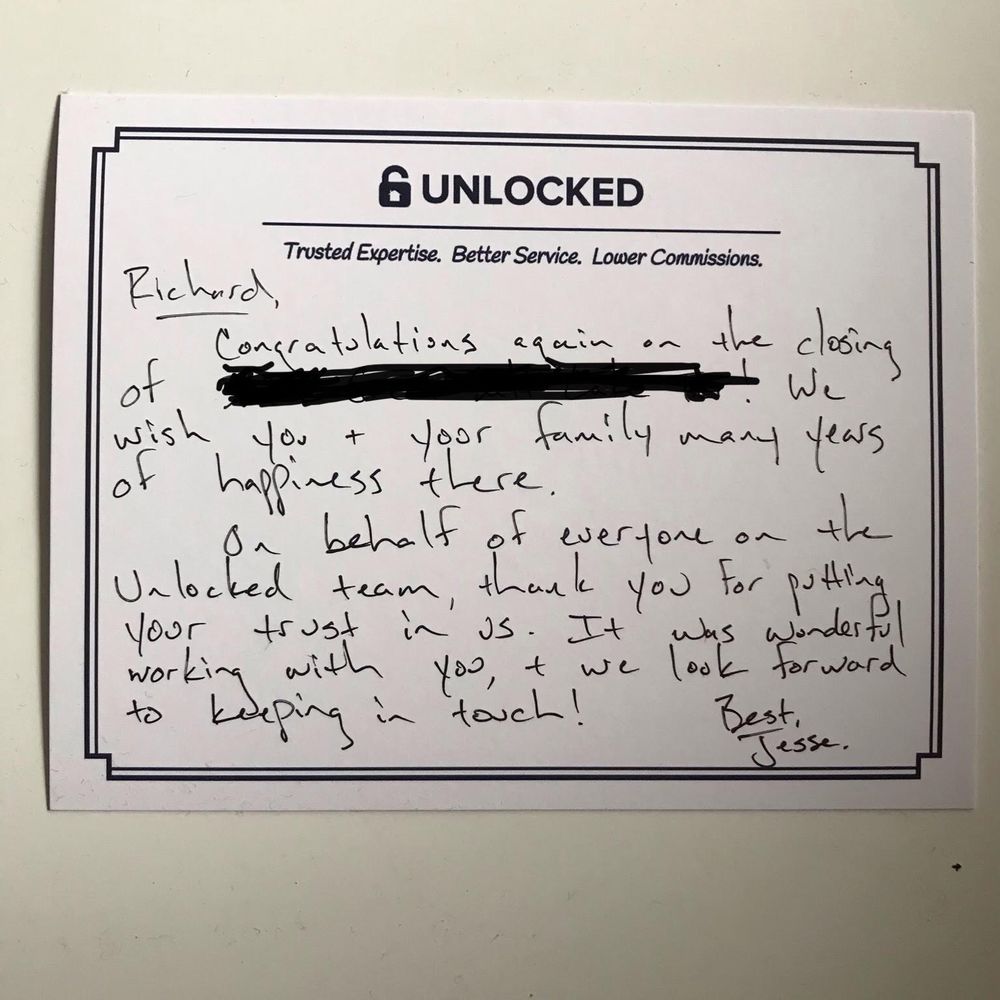 UNLOCKED
Trusted Expertise. Better Service. Lower Commissions.
Richard,
Congratulations again on the closing
of ! We
wish you + your family many years
of happiness there.
On behalf of everyone on the
Unlocked team, thank you for putting
your trust in us. It was wonderful
working with you, + we look forward
to keeping in touch!
Best,
Jesse.